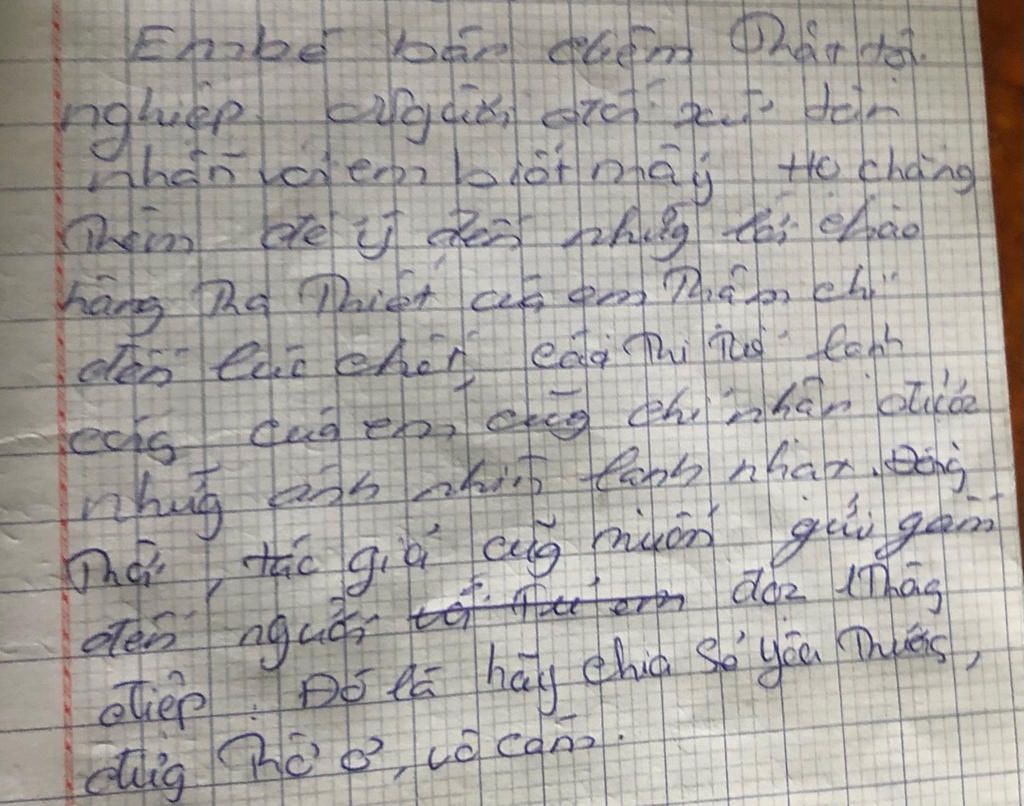 Em bé bán diêm thật tội
nghiệp. Người đời xử tàn
nhẫn với em biết mấy. Họ chẳng
thèm để ý đến những lời chào
hàng tha thiết của em thậm chí
đến lúc chết, cái thi thể lạnh
cóng của em cũng chỉ nhận được
những ánh nhìn lạnh nhạt. Đồng
thời, tác giả cũng muốn gửi gắm
đến người đọc thông
điệp. Đó là hãy chia sẻ yêu thương,
đừng thờ ơ, vô cảm.